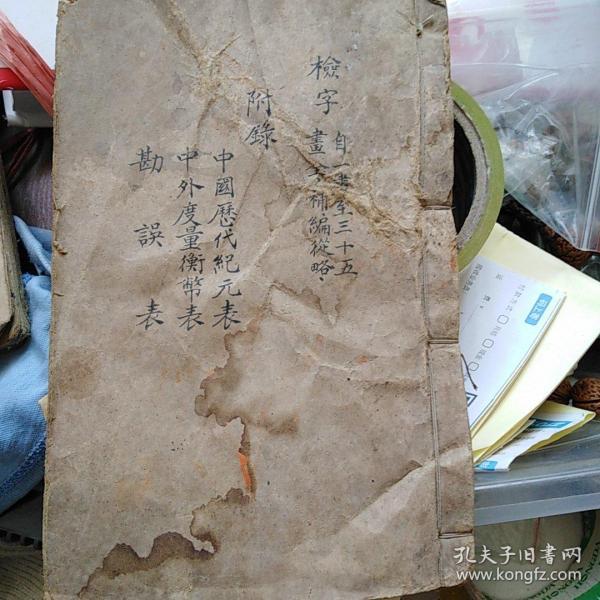 檢字
自一畫至三十五
畫 補編從略
附錄
中國歷代紀元表
中外度量衡幣表
勘誤表
孔夫子旧書网
www.kongfz.com